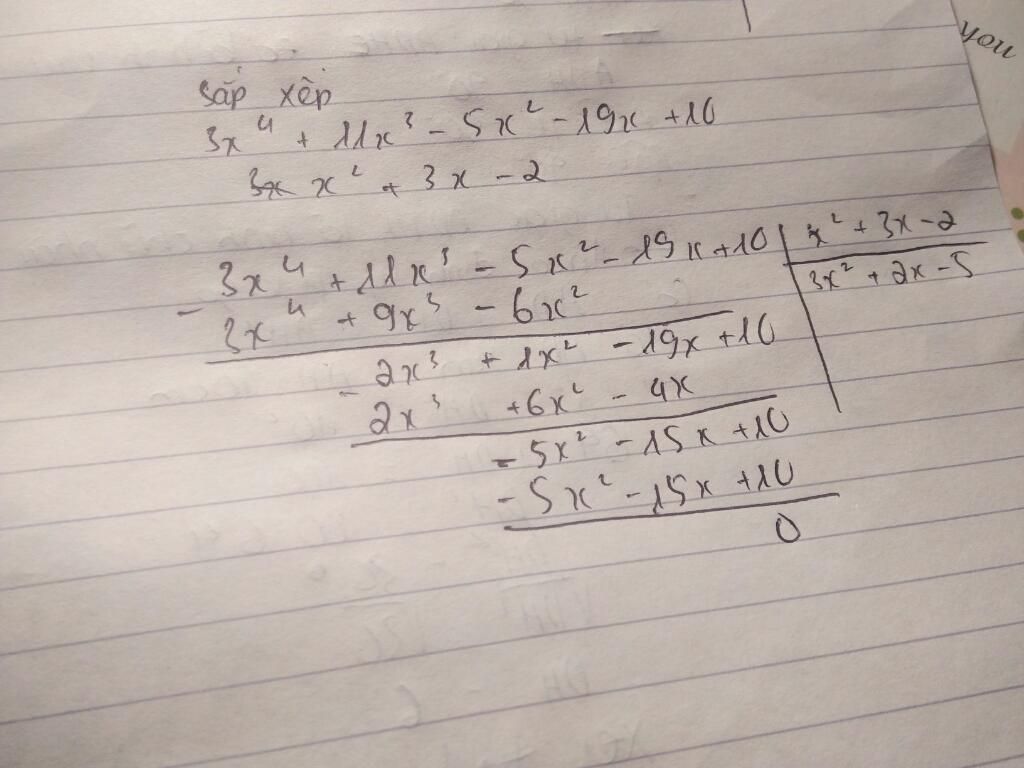 sắp xếp
3x⁴ + 11x³ - 5x² - 19x + 10
x² + 3x - 2
3x⁴ + 11x³ - 5x² - 19x + 10 | x² + 3x - 2
- 3x⁴ + 9x³ - 6x² | 3x² + 2x - 5
2x³ + 1x² - 19x + 10
- 2x³ + 6x² - 4x
- 5x² - 15x + 10
- 5x² - 15x + 10
0
you